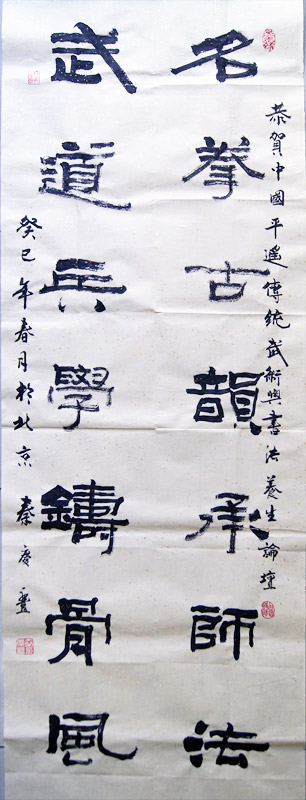 恭賀中國平遙傳統武術與書法養生論壇
名拳古韻承師法
武道兵學鑄骨風
癸巳年春月於北京 秦庚豐